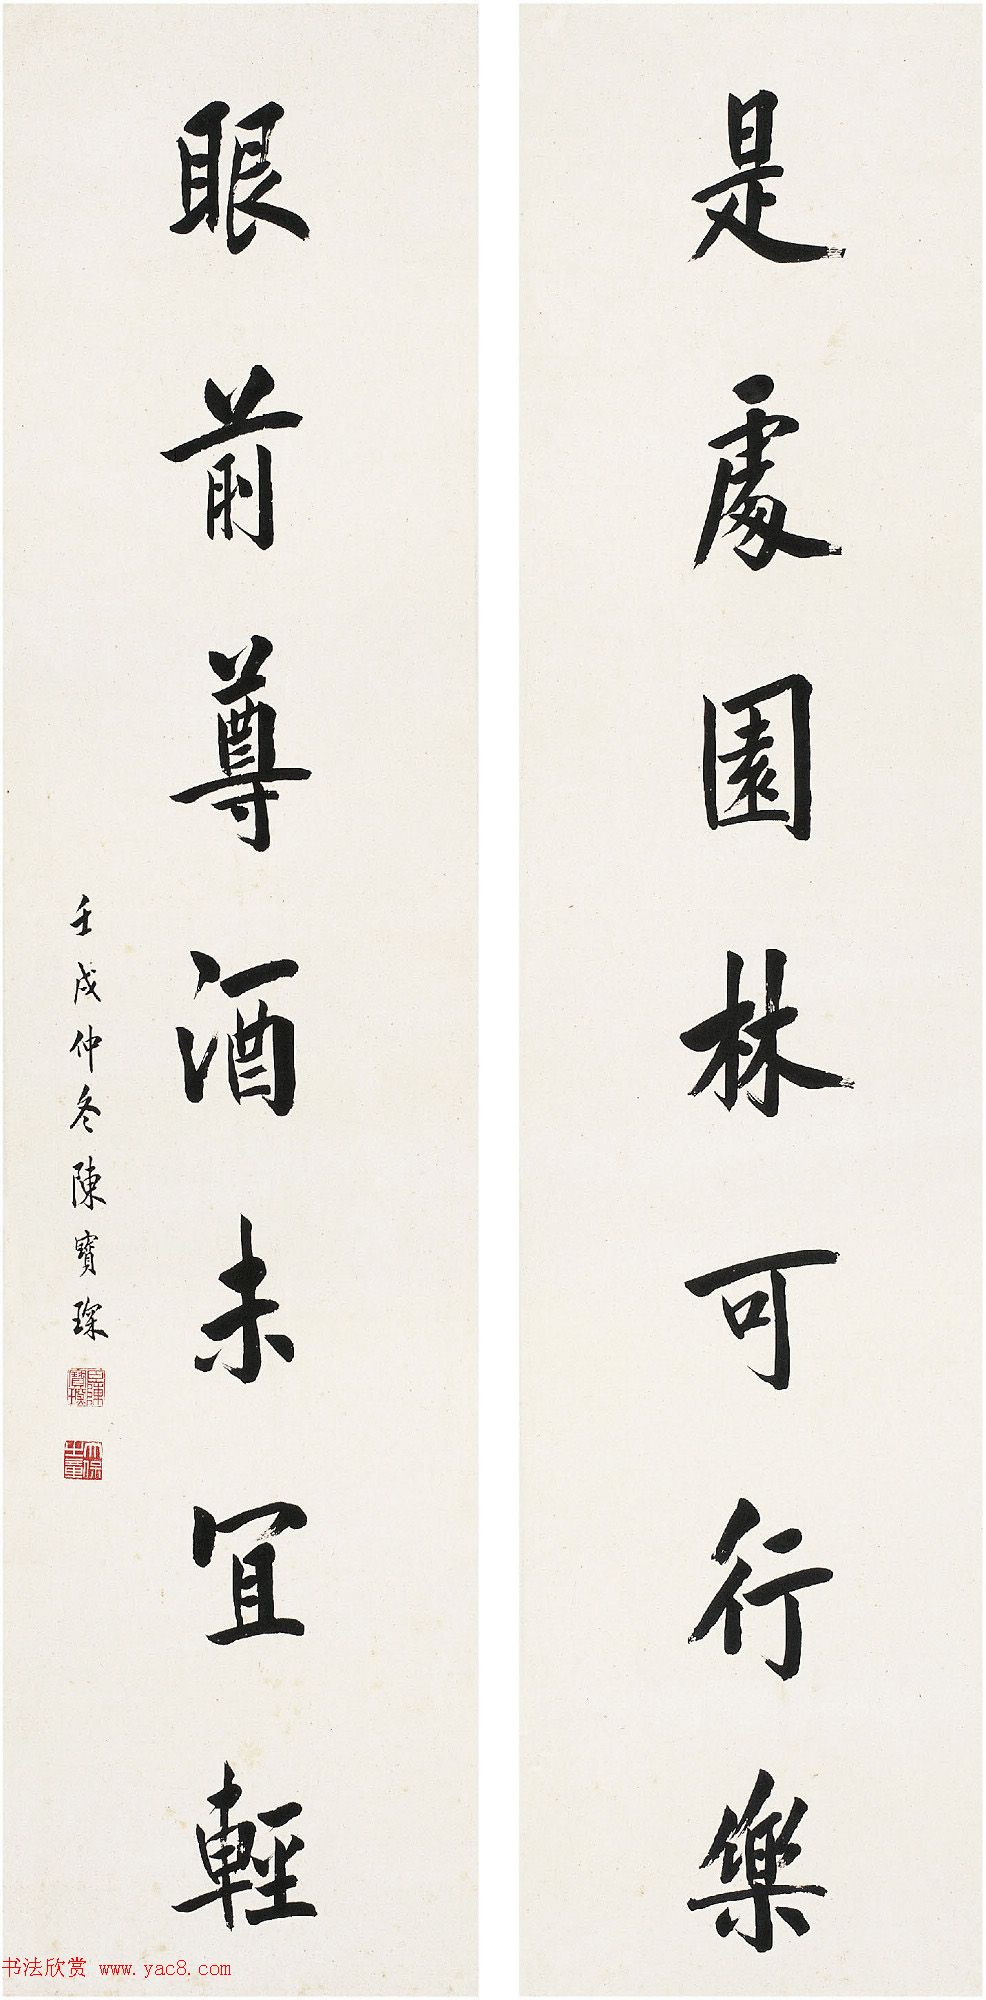 是處園林可行樂
眼前尊酒未宜輕
壬戌仲冬陳寶琛
臣陳寶琛
太保之章
书法欣赏 www.yac8.com